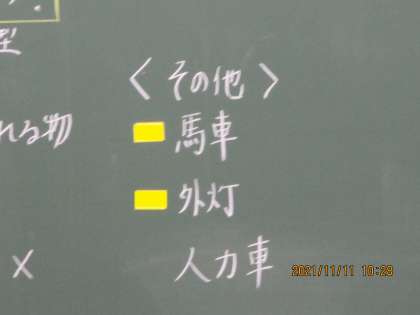 型
〈その他〉
れる物
馬車
外灯
×
人力車
2021/11/11 10:29